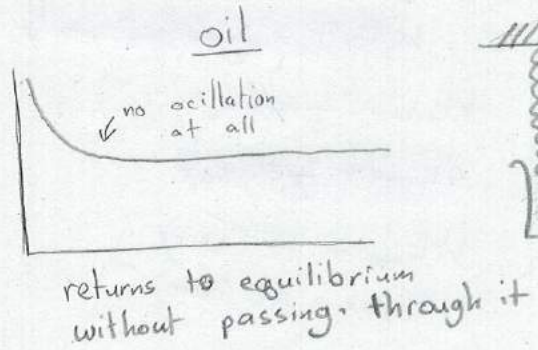 oil
no ocillation
at all
returns to equilibrium
without passing. through it